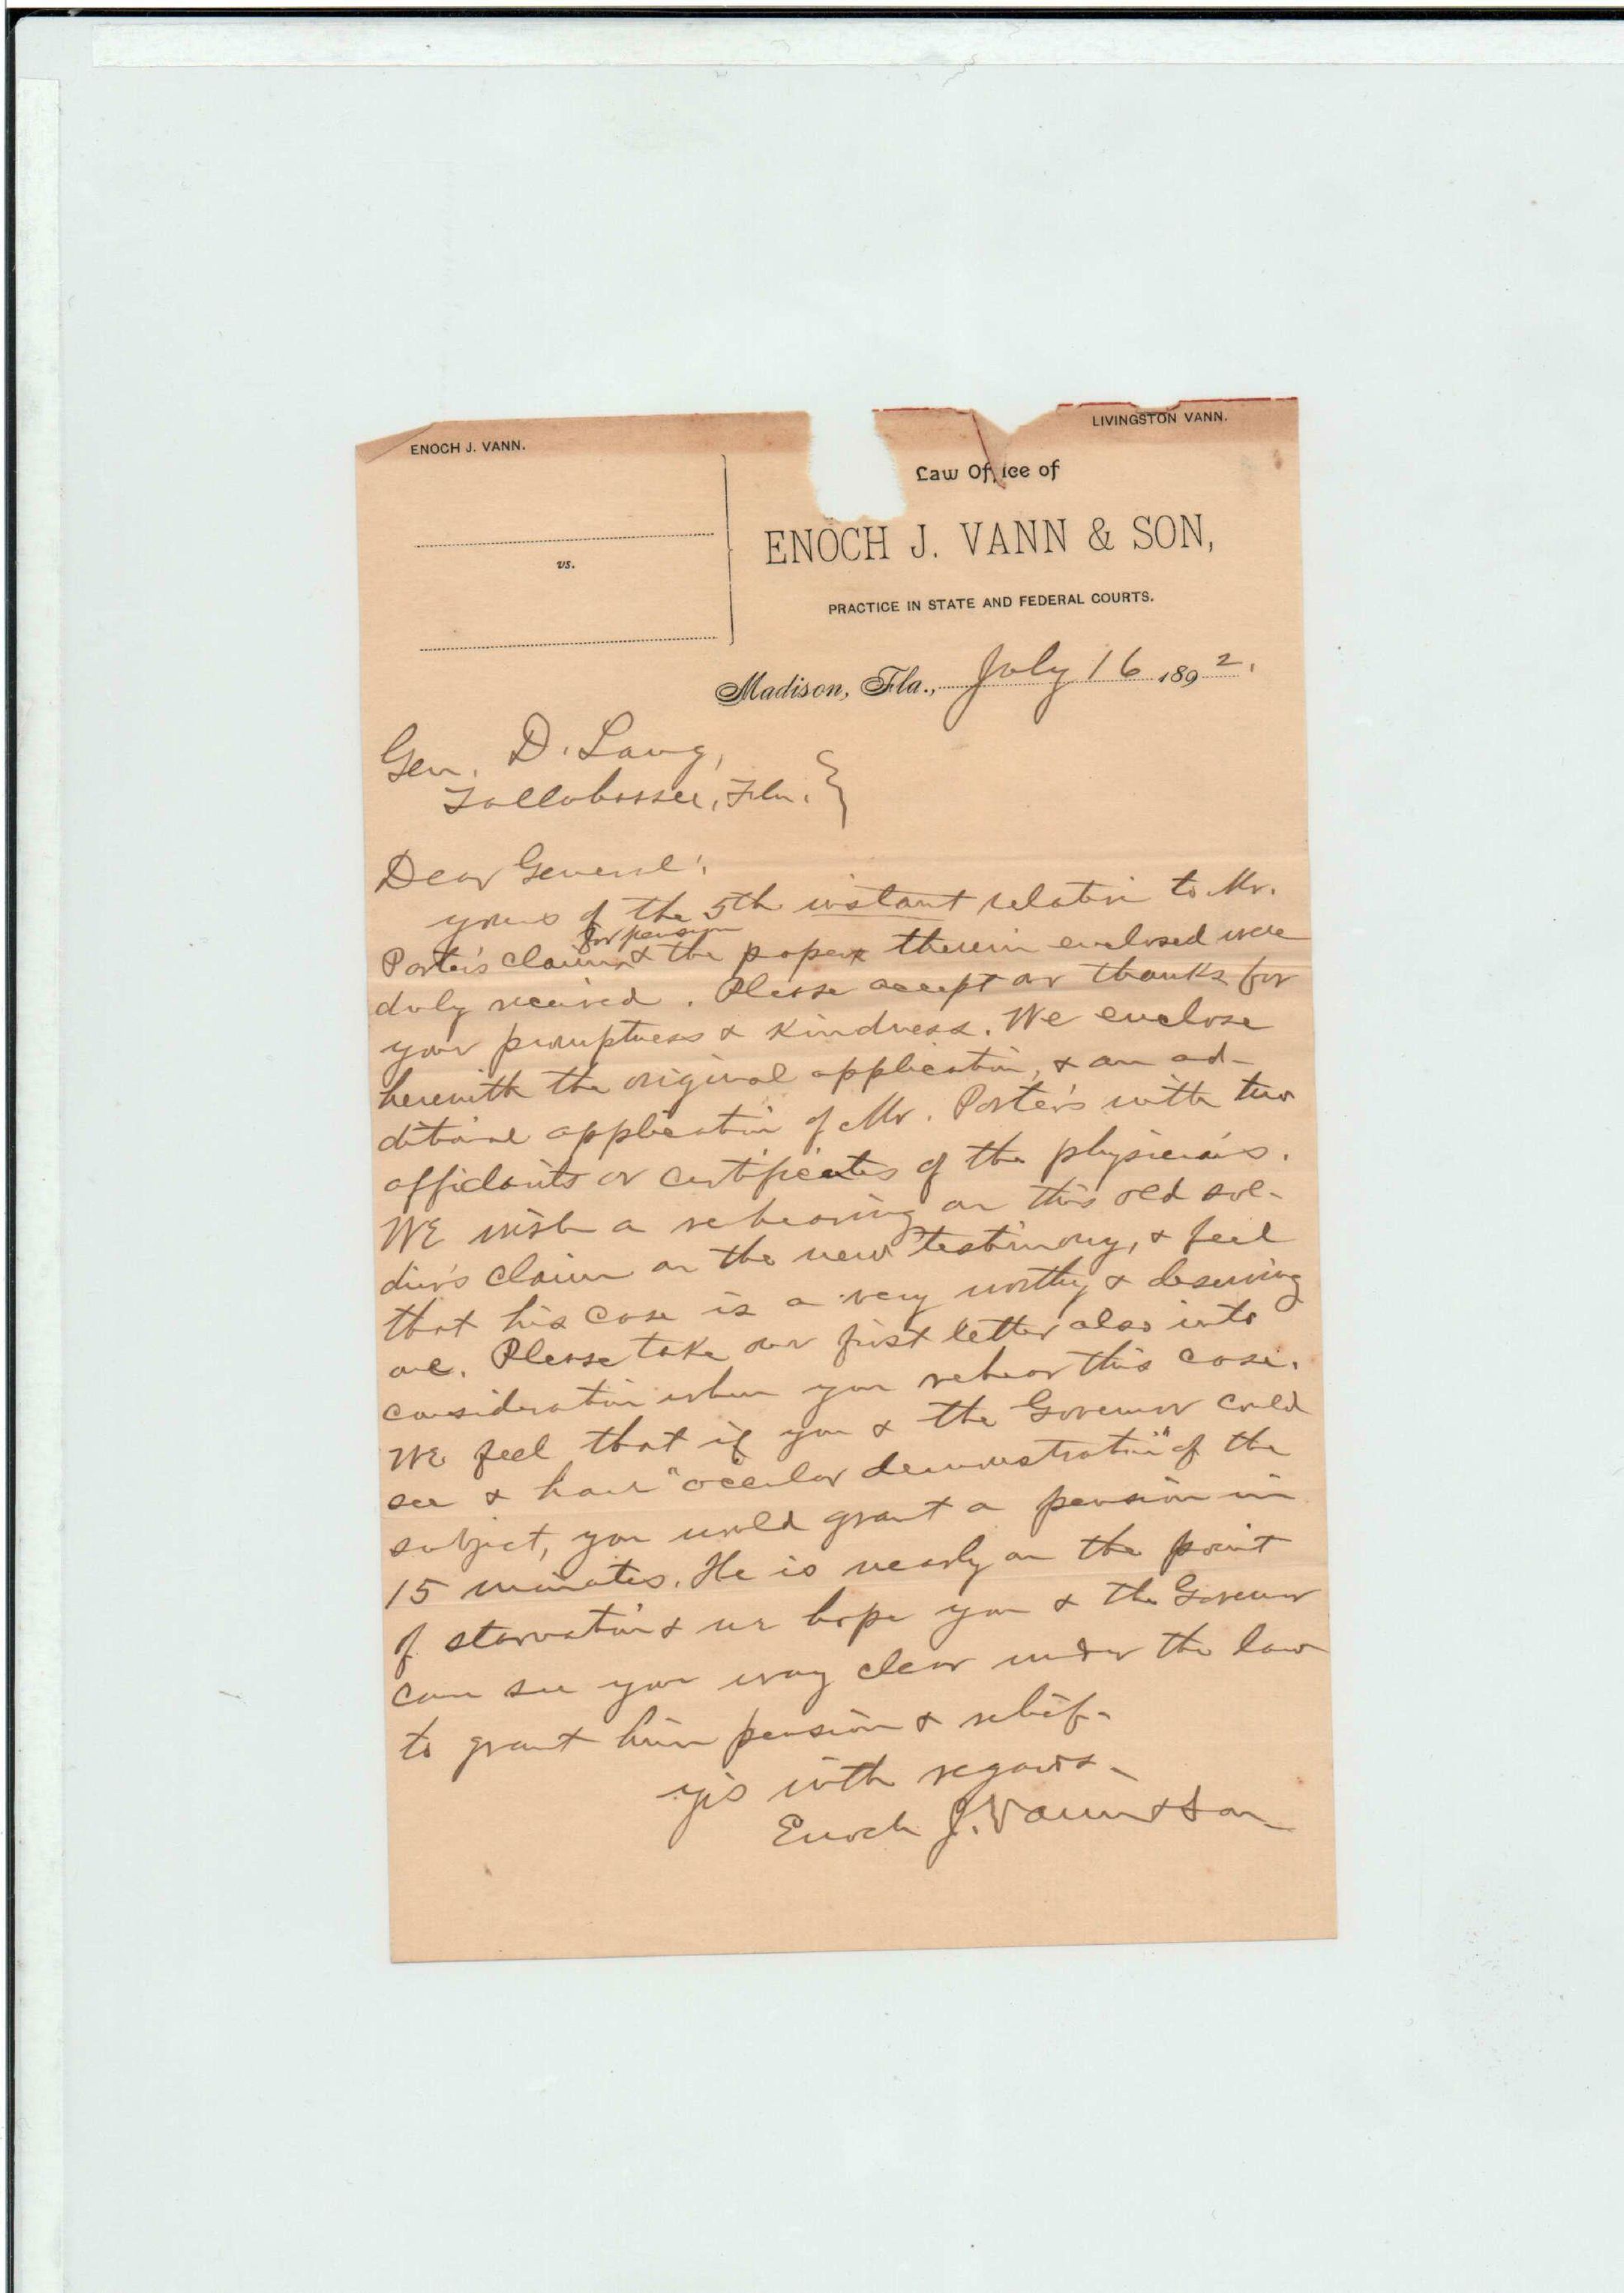 ENOCH J. VANN.
LIVINGSTON VANN.
Law Office of
ENOCH J. VANN & SON,
PRACTICE IN STATE AND FEDERAL COURTS.
vs.
Madison, Fla., July 16 1892.
Gen. D. Lang,
Tallahassee, Fla. }
Dear General:
yours of the 5th instant relative to Mr.
for pension
Porter's claim & the papers therein enclosed were
duly received. Please accept our thanks for
your promptness & kindness. We enclose
herewith the original application, & an ad-
ditional application of Mr. Porter's with two
affidavits or certificates of the physicians.
We wish a rehearing on this old sol-
dier's claim on the new testimony, & feel
that his case is a very worthy & deserving
one. Please take our first letter also into
consideration when you rehear this case.
We feel that if you & the Governor could
see & have "occular demonstration" of the
subject, you would grant a pension in
15 minutes. He is nearly on the point
of starvation & we hope you & the Governor
can see your way clear under the law
to grant him pension & relief.
yrs with regards.
Enoch J. Vann & Son